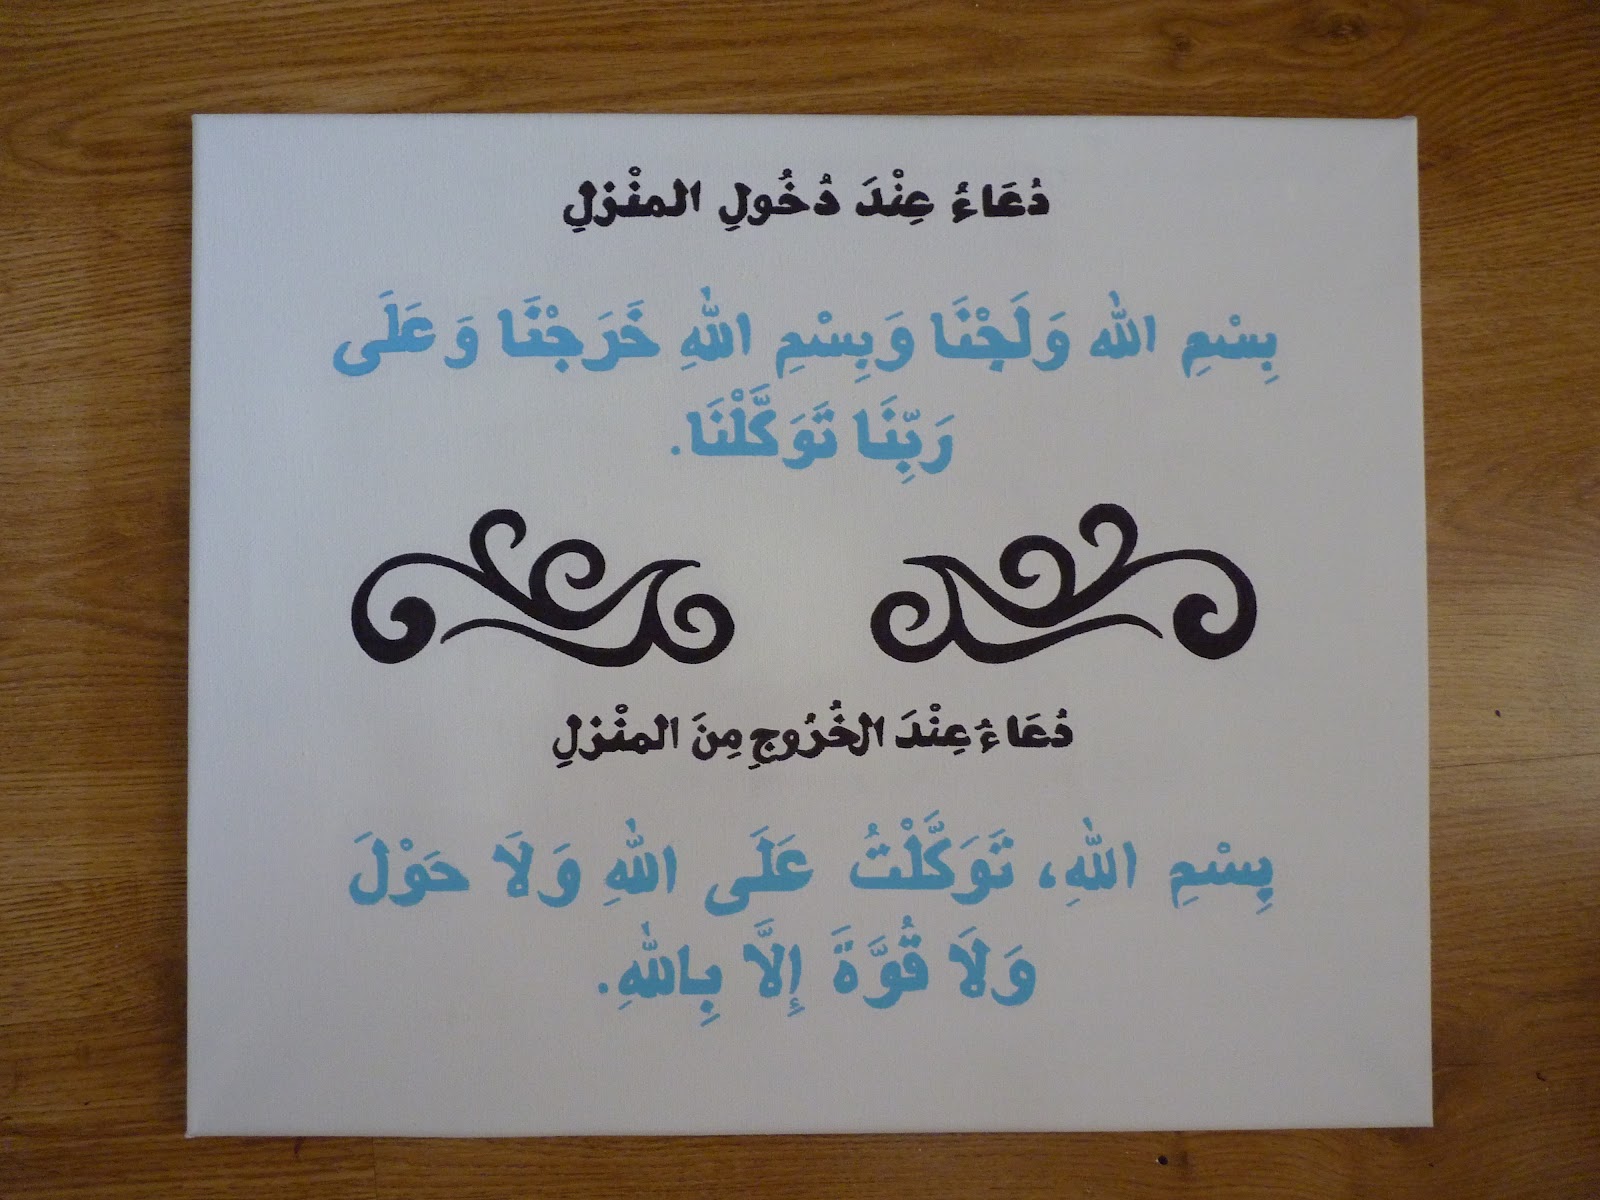 دُعَاءُ عِنْدَ دُخُولِ المنْزلِ
بِسْمِ الله وَلَجْنَا وَبِسْمِ اللهِ خَرَجْنَا وَعَلَى
رَبِّنَا تَوَكَّلْنَا.
دُعَاءُ عِنْدَ الخُرُوجِ مِنَ المنْزلِ
بِسْمِ اللهِ، تَوَكَّلْتُ عَلَى اللهِ وَلَا حَوْلَ
وَلَا قُوَّةَ إِلَّا بِاللهِ.